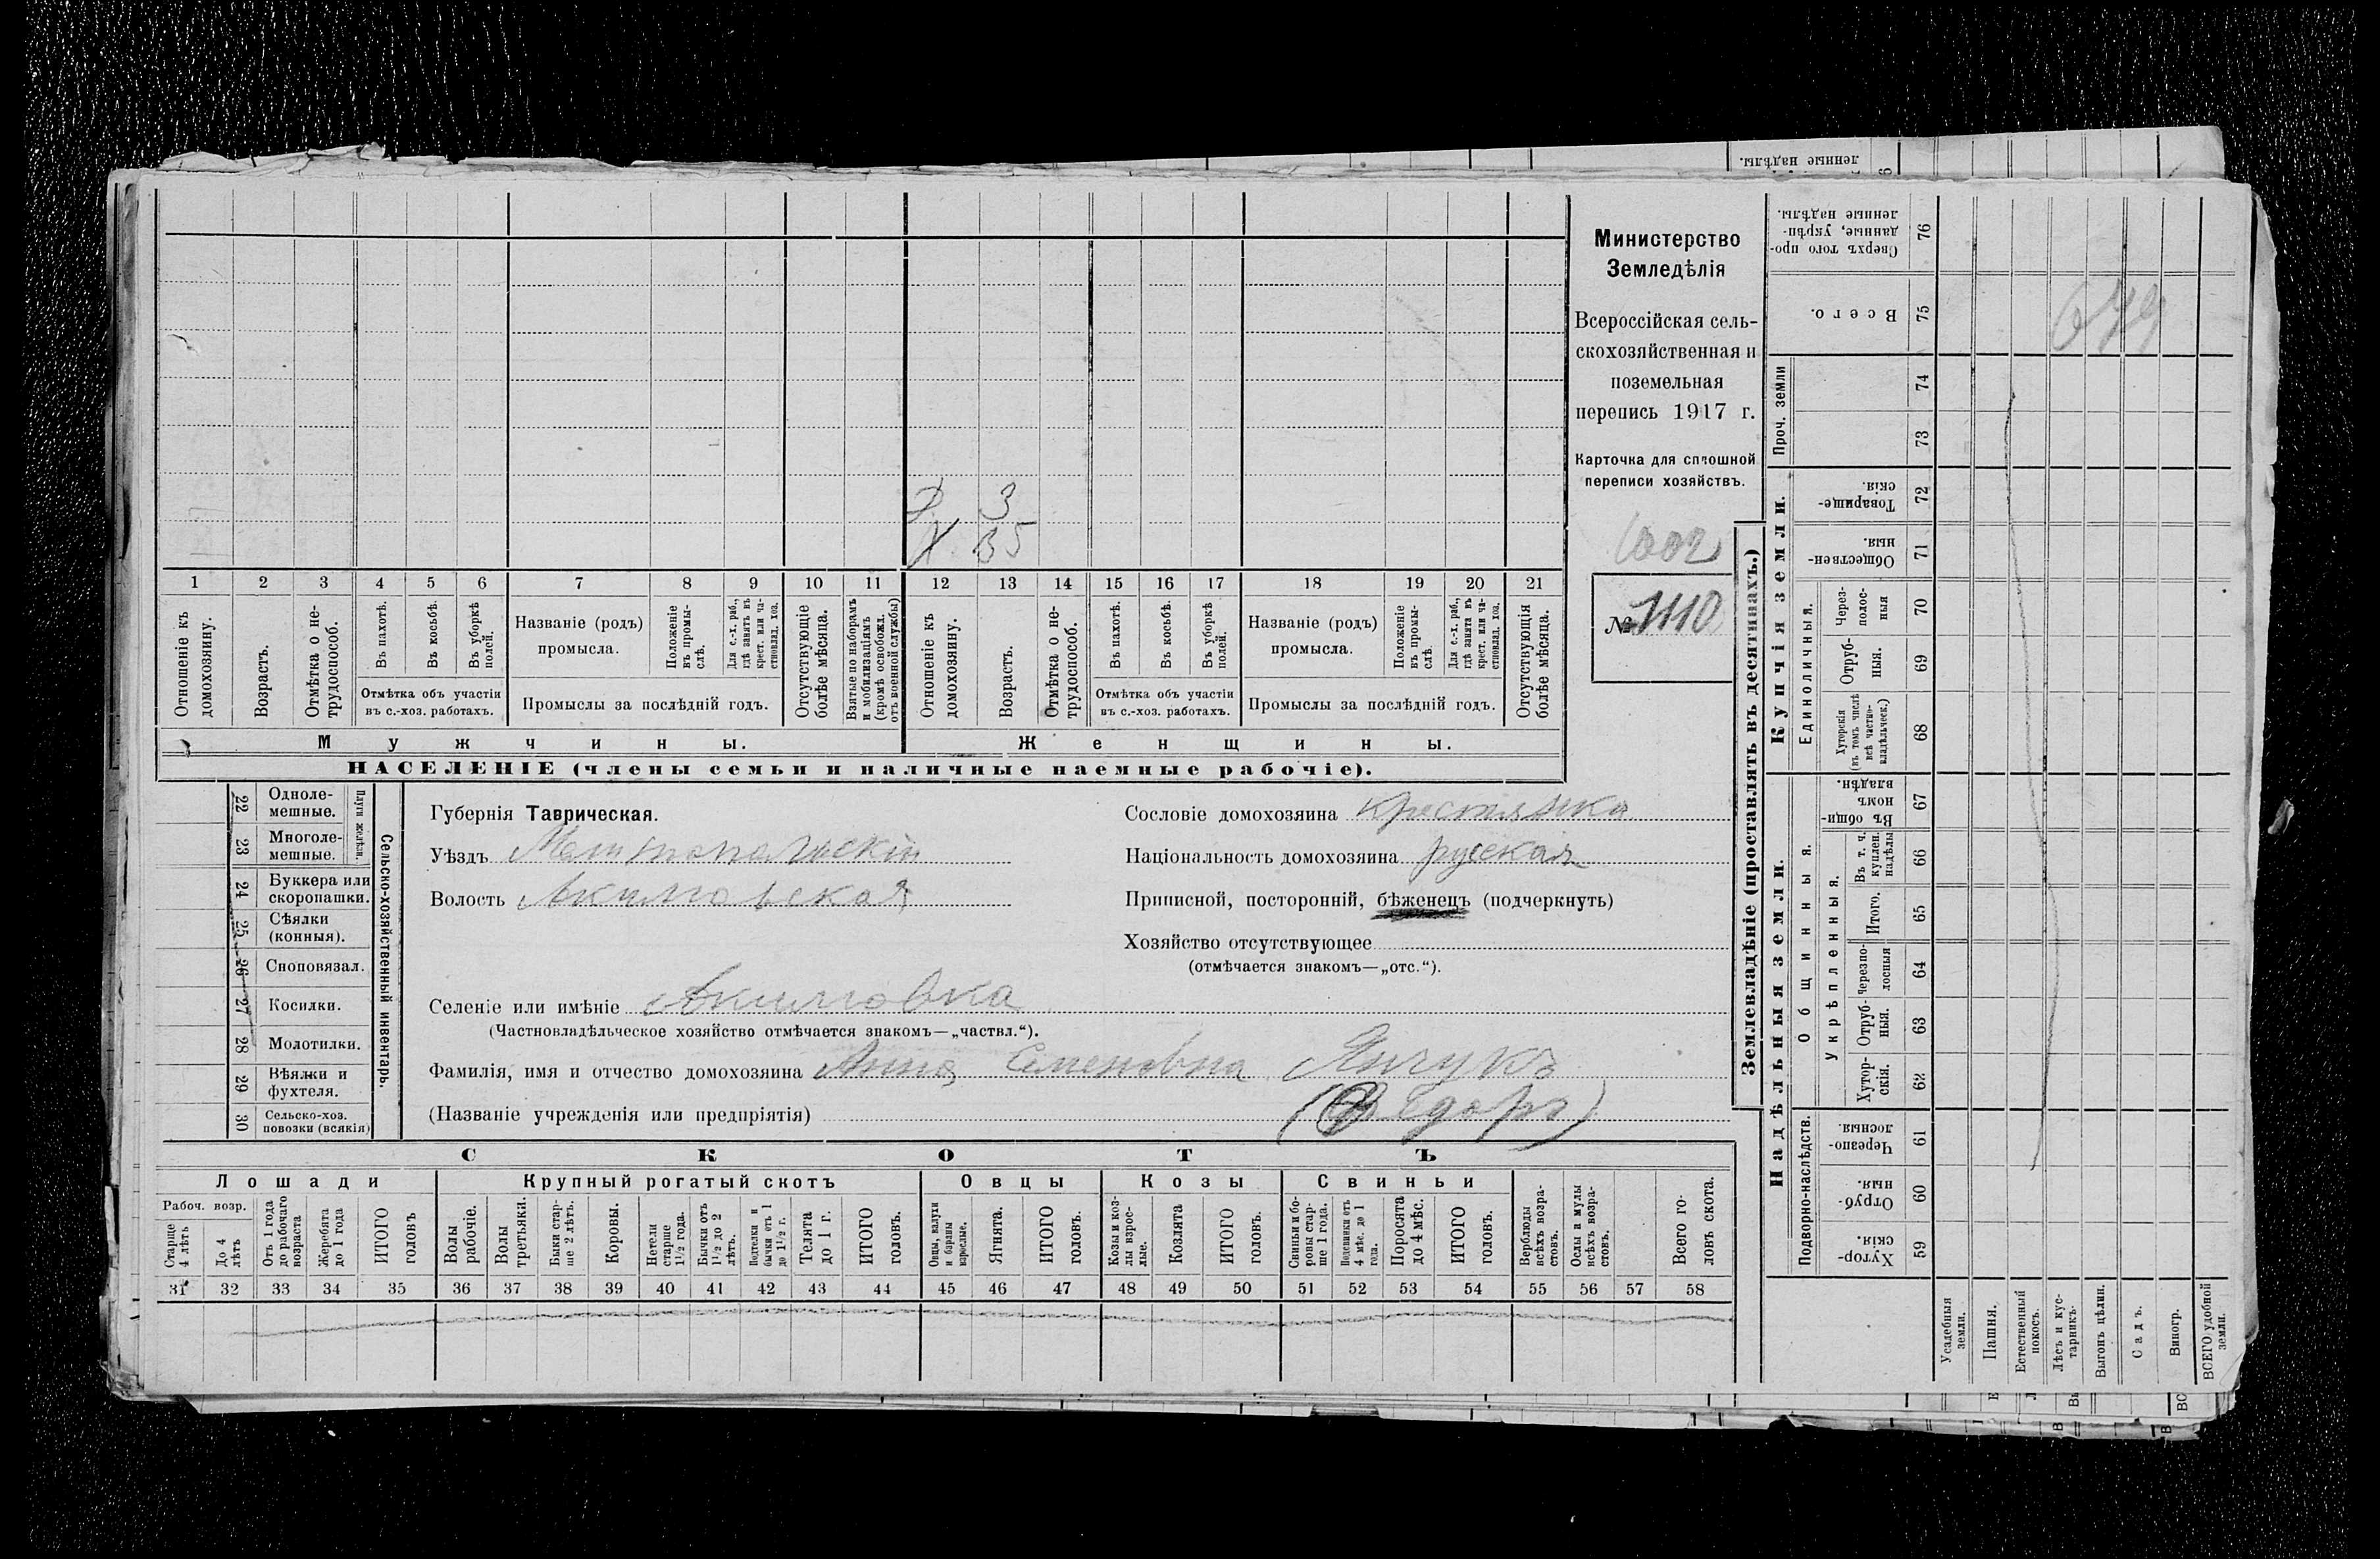 ленные надѣлы.
Министерство
Земледѣлія
Всероссійская сель-
скохозяйственная и
поземельная
перепись 1917 г.
Карточка для сплошной
переписи хозяйствъ.
1002
№ 1110
3
Х 35
1 2 3 4 5 6 7 8 9 10 11 12 13 14 15 16 17 18 19 20 21
Отношеніе къ домохозяину.
Возрастъ.
Отмѣтка о не-трудоспособ.
Въ пахотѣ.
Въ косьбѣ.
Въ уборкѣ полей.
Отмѣтка объ участіи
въ с.-хоз. работахъ.
Названіе (родъ)
промысла.
Положеніе въ промы-слѣ.
Для с.-х. раб., гдѣ занятъ въ крест. или ча-стновлад. хоз.
Промыслы за послѣдній годъ.
Отсутствующіе болѣе мѣсяца.
Взятые по наборамъ и мобилизаціямъ (кромѣ освобожд. отъ военной службы)
Отношеніе къ домохозяину.
Возрастъ.
Отмѣтка о не-трудоспособ.
Въ пахотѣ.
Въ косьбѣ.
Въ уборкѣ полей.
Отмѣтка объ участіи
въ с.-хоз. работахъ.
Названіе (родъ)
промысла.
Положеніе въ промы-слѣ.
Для с.-х. раб., гдѣ занята въ крест. или ча-стновлад. хоз.
Промыслы за послѣдній годъ.
Отсутствующія болѣе мѣсяца.
Мужчины.
Женщины.
НАСЕЛЕНІЕ (члены семьи и наличные наемные рабочіе).
22 Одноле-мешные.
23 Многоле-мешные.
Плуги желѣзн.
24 Буккера или скоропашки.
25 Сѣялки (конныя).
26 Сноповязал.
27 Косилки.
28 Молотилки.
29 Вѣялки и фухтеля.
30 Сельско-хоз. повозки (всякія)
Сельско-хозяйственный инвентарь.
Губернія Таврическая.
Уѣздъ Мелитопольскій
Волость Акимовская
Сословіе домохозяина крестьянка
Національность домохозяина русская
Приписной, посторонній, бѣженецъ (подчеркнуть)
Хозяйство отсутствующее
(отмѣчается знакомъ—„отс.“).
Селеніе или имѣніе Акимовка
(Частновладѣльческое хозяйство отмѣчается знакомъ—„частвл.“).
Фамилія, имя и отчество домохозяина Анна Семеновна Янчукъ
(Названіе учрежденія или предпріятія) (Федоръ)
СКОТЪ
Лошади
Крупный рогатый скотъ
Овцы
Козы
Свиньи
Рабоч. возр.
Старше 4 лѣтъ
До 4 лѣтъ
Отъ 1 года до рабочаго возраста
Жеребята до 1 года
ИТОГО головъ
Волы рабочіе.
Волы третьяки.
Быки стар-ше 2 лѣтъ.
Коровы.
Нетели старше 1½ года.
Бычки отъ 1½ до 2 лѣтъ.
Подтелки и бычки отъ 1 до 1½ г.
Телята до 1 г.
ИТОГО головъ.
Овцы, валухи и бараны взрослые.
Ягнята.
ИТОГО головъ.
Козы и коз-лы взрос-лые.
Козлята
ИТОГО головъ.
Свиньи и бо-ровы стар-ше 1 года.
Подсвинки отъ 4 мѣс. до 1 года.
Поросята до 4 мѣс.
ИТОГО головъ.
Верблюды всѣхъ возра-стовъ.
Ослы и мулы всѣхъ возра-стовъ.
Всего го-ловъ скота.
31 32 33 34 35 36 37 38 39 40 41 42 43 44 45 46 47 48 49 50 51 52 53 54 55 56 57 58
Землевладѣніе (проставлять въ десятинахъ.)
Надѣльныя земли.
Купчія земли.
Проч. земли
Подворно-наслѣдств.
Общинныя.
Укрѣпленныя.
Единоличныя.
Сверхъ того про-данные, укрѣп-ленные надѣлы. 76
Всего. 75
74
73
Товарище-скія. 72
Обществен-ныя. 71
Через-полос-ныя 70
Отруб-ныя. 69
Хуторскія (въ томъ числѣ всѣ частно-владѣльческ.) 68
Въ общин-номъ владѣн. 67
Въ т. ч. куплен. надѣлы 66
Итого. 65
Черезпо-лосныя 64
Отруб-ныя. 63
Хутор-скія. 62
Черезпо-лосныя 61
Отруб-ныя. 60
Хутор-скія. 59
Усадебныя земли.
Пашня.
Естественный покосъ.
Лѣсъ и кус-тарникъ.
Выгонъ цѣлин.
Садъ.
Виногр.
ВСЕГО удобной земли.
679